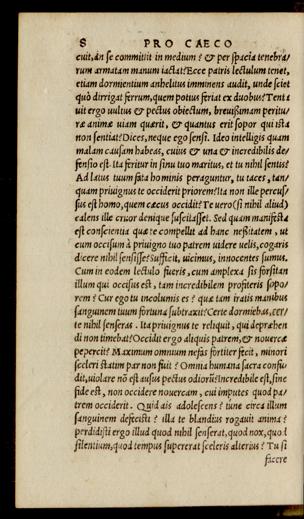 8 PRO CAECO
cuit, an se committit in medium? & per spacia tenebra⸗
rum armatam manum iactat? Ecce patris lectulum tenet,
etiam dormientium anhelitus imminens audit, unde sciet
quò dirigat ferrum, quem potius feriat ex duobus? Tenta
uit ergo uultus & pectus obiectum, breuißimam peritu⸗
ræ animæ uiam quærit, & quantus erit sopor qui ista
non sentiat? Dices, neque ego sensi. Ideo intelligis quam
malam causam habeas, cuius & una & incredibilis de⸗
fensio est. Ita feritur in sinu tuo maritus, et tu nihil sentis?
Ad latus tuum fata hominis peraguntur, tu taces, tan⸗
quam priuignus te occiderit priorem? Ita non ille percus⸗
sus est homo, quem cæcus occidit? Te uerò (si nihil aliud)
calens ille cruor denique suscitasset. Sed quam manifesta
est conscientia quæ te compellit ad hanc neßitatem, ut
eum occisum à priuigno tuo patrem uidere uelis, cogaris
dicere nihil sensisse? Sufficit, uicimus, innocentes sumus.
Cum in eodem lectulo fueris, cum amplexa sis forsitan
illum qui occisus est, tam incredibilem profiteris sopo⸗
rem? Cur ego tu incolumis es? quæ tam iratis manibus
sanguinem tuum fortuna subtraxit? Certe dormiebas, cer⸗
te nihil senseras. Ita priuignus te reliquit, qui depræhen
di non timebat? Occidit ergo aliquis patrem, & nouercæ
pepercit? Maximum omnium nefas fortiter fecit, minori
sceleri statim par non fuit? Omnia humana sacra confu⸗
dit, uiolare nõ est ausus pectus odiorũ? Incredibile est, sine
fide est, non occidere nouercam, cui imputes quod pa⸗
trem occiderit. Quid ais adolescens? tunc circa illum
sanguinem defecisti? illa te blandius rogauit anima?
perdidisti ergo illud quod nihil senserat, quod nox, quod
silentium, quod tempus supererat sceleris alterius? Tu si
facere